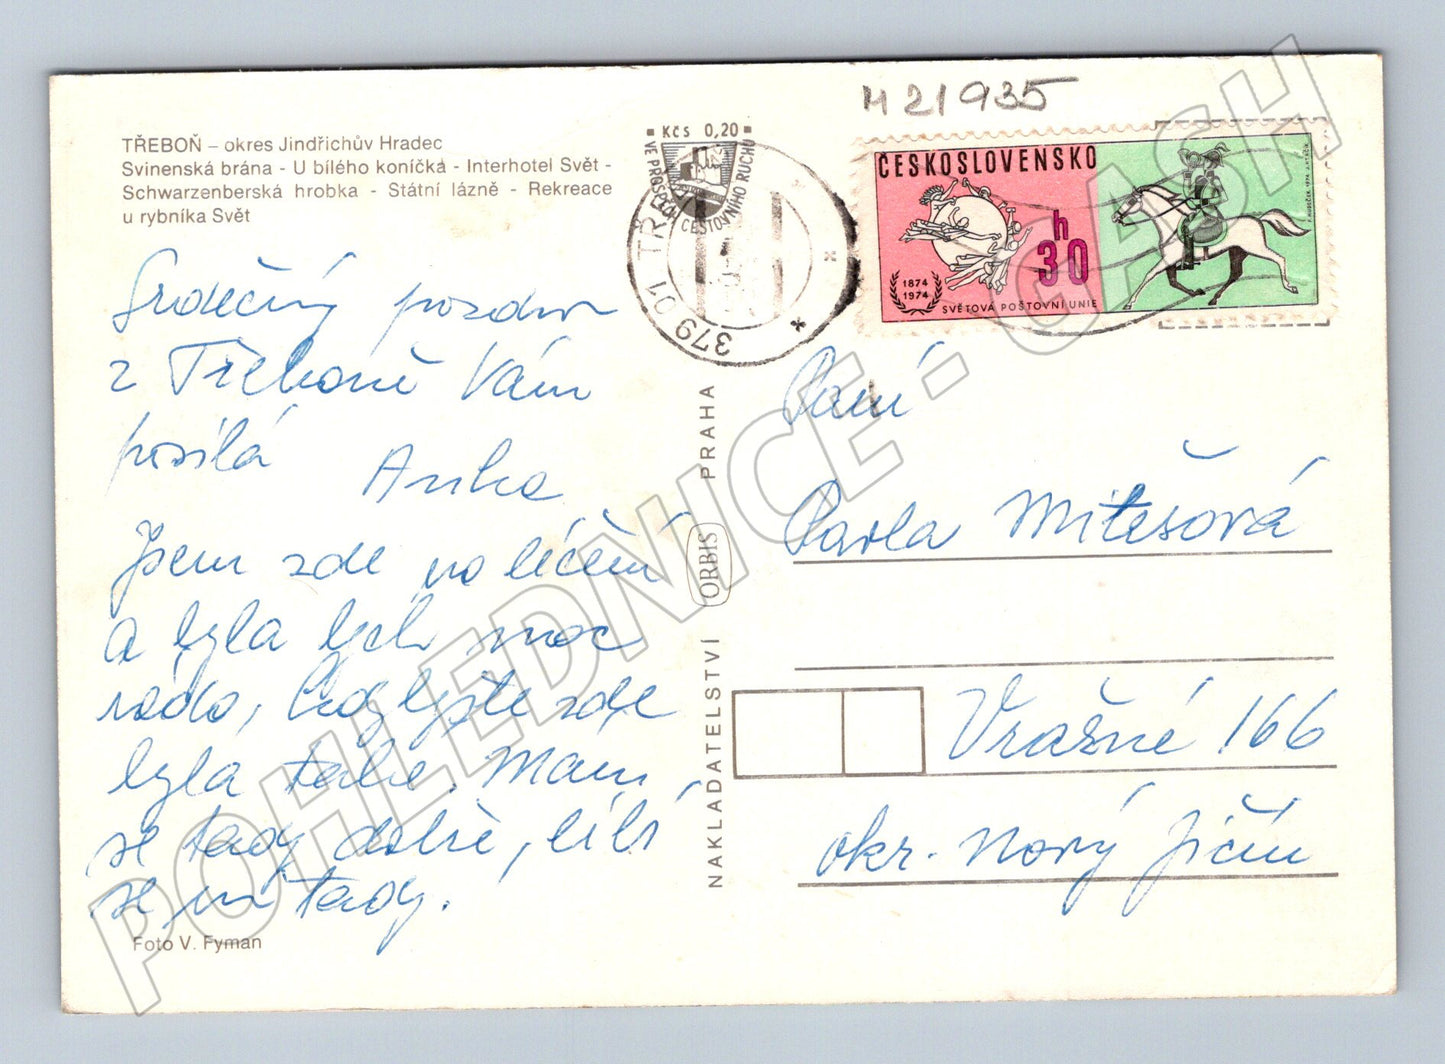 M 21935
TŘEBOŇ – okres Jindřichův Hradec
Svinenská brána - U bílého koníčka - Interhotel Svět -
Schwarzenberská hrobka - Státní lázně - Rekreace
u rybníka Svět
Kčs 0,20
VE PROSPĚCH CESTOVNÍHO RUCHU
379 01 TŘE
ČESKOSLOVENSKO
h
30
1874
1974
SVĚTOVÁ POŠTOVNÍ UNIE
Srdečný pozdrav
z Třeboně Vám
posílá
Anka
Jsem zde na léčení
a byla bych moc
ráda, kdybyste zde
byla také. Mám
se tady dobře, líbí
se mi tady.
Foto V. Fyman
NAKLADATELSTVÍ ORBIS PRAHA
Paní
Pavla Mitešová
Vražné 166
okr. Nový Jičín
POHLEDNICE - CASH